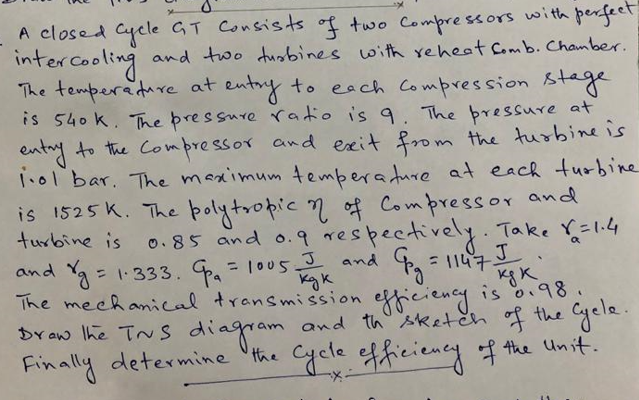 A closed cycle GT consists of two compressors with perfect
intercooling and two turbines with reheat Comb. Chamber.
The temperature at entry to each compression stage
is 540 K. The pressure ratio is 9. The pressure at
entry to the Compressor and exit from the turbine is
1.01 bar. The maximum temperature at each turbine
is 1525 K. The polytropic η of Compressor and
turbine is 0.85 and 0.9 respectively. Take γa = 1.4
and γg = 1.333. Cpa = 1005 J/KgK and Cpg = 1147 J/KgK.
The mechanical transmission efficiency is 0.98.
Draw the T~S diagram and th sketch of the Cycle.
Finally determine the Cycle efficiency of the Unit.